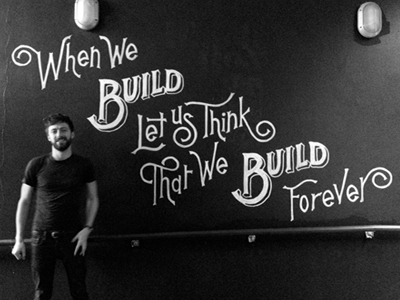 When We
BUILD
Let us Think
That We BUILD
Forever